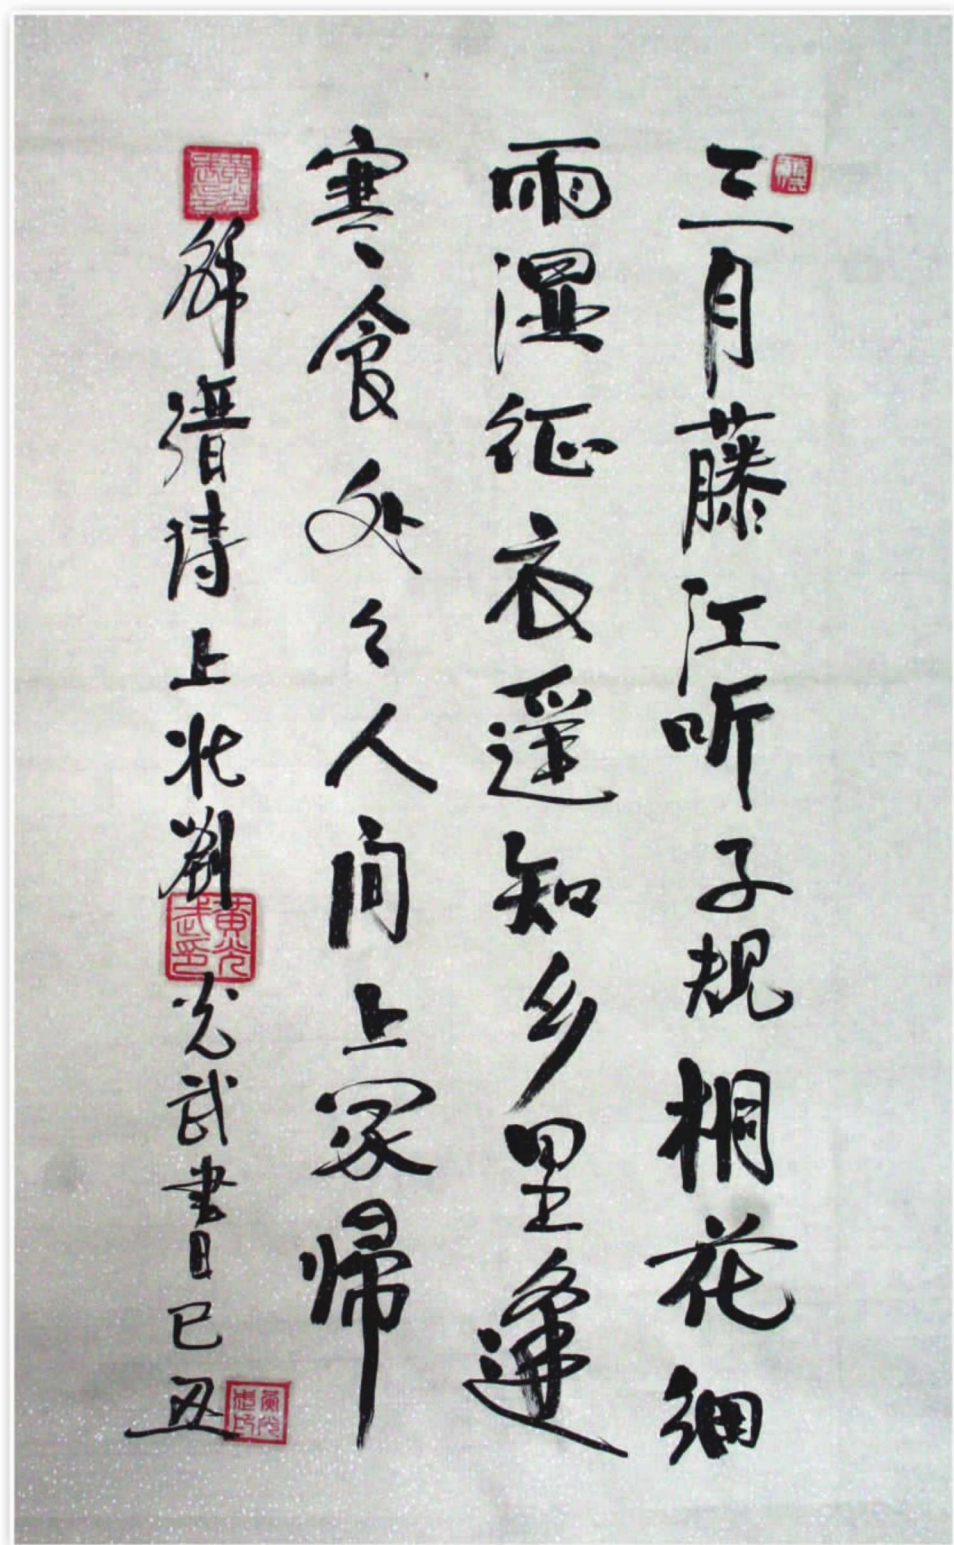 三月藤江听子规桐花细
雨湿征衣遥知乡里逢
寒食处处人间上冢归
解缙诗上北劉
光武書 己丑
黄光武印